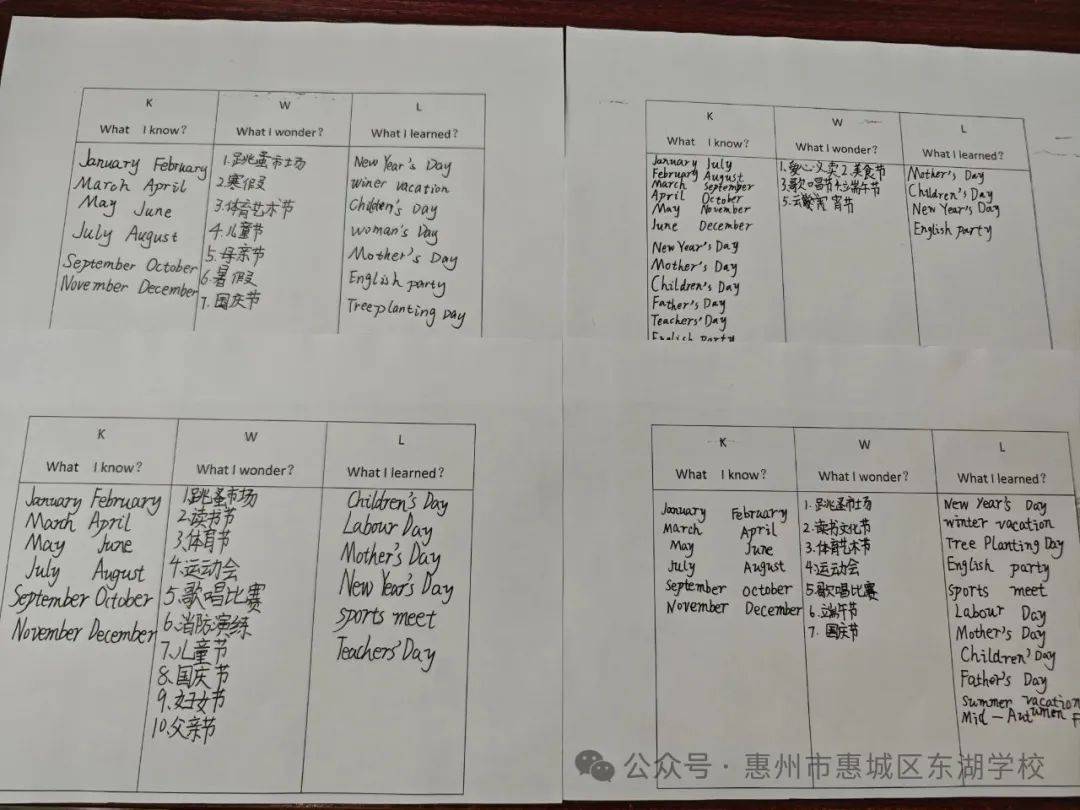 K
What I know?
January February
March April
May June
July August
September October
November December
W
What I wonder?
1.跳蚤市场
2.寒假
3.体育艺术节
4.儿童节
5.母亲节
6.暑假
7.国庆节
L
What I learned?
New Year's Day
winer vacation
Childen's Day
woman's Day
Mother's Day
English party
Tree planting Day
K
What I know?
January July
February August
March September
April October
May November
June December
New Year's Day
Mother's Day
Children's Day
Father's Day
Teachers' Day
English party
W
What I wonder?
1.爱心义卖 2.美食节
3.歌唱节 4.端午节
5.元宵节
L
What I learned?
Mother's Day
Children's Day
New Year's Day
English party
K
What I know?
January February
March April
May June
July August
September October
November December
W
What I wonder?
1.跳蚤市场
2.读书节
3.体育节
4.运动会
5.歌唱比赛
6.消防演练
7.儿童节
8.国庆节
9.妇女节
10.父亲节
L
What I learned?
Children's Day
Labour Day
Mother's Day
New Year's Day
sports meet
Teachers' Day
K
What I know?
January February
March April
May June
July August
September october
November December
W
What I wonder?
1.跳蚤市场
2.读书文化节
3.体育艺术节
4.运动会
5.歌唱比赛
6.端午节
7.国庆节
L
What I learned?
New Year's Day
winter vacation
Tree Planting Day
English party
sports meet
Labour Day
Mother's Day
Children' Day
Father's Day
summer vacation
Mid-Autumen F
公众号·惠州市惠城区东湖学校